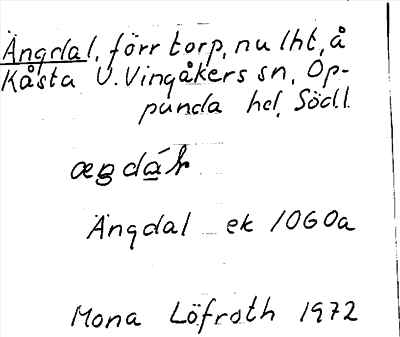 Ängdal, förr torp, nu lht, å
Kåsta V. Vingåkers sn, Op-
punda hd, Södl.
Ängdal ek 10G0a
Mona Löfroth 1972